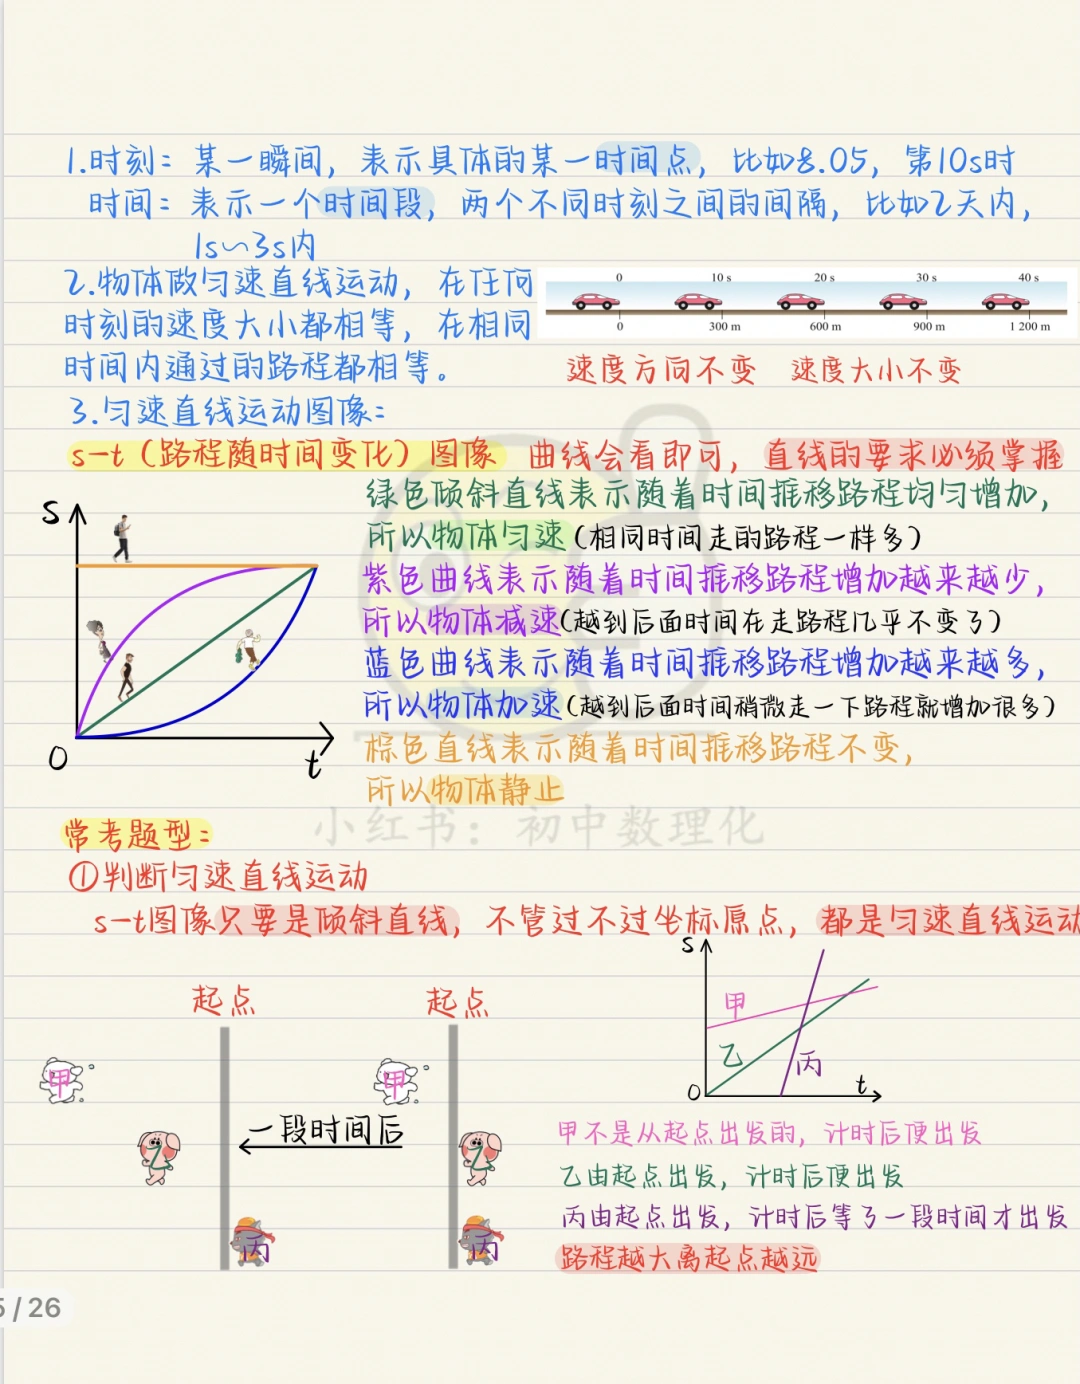 1.时刻：某一瞬间，表示具体的某一时间点，比如8.05，第10s时
时间：表示一个时间段，两个不同时刻之间的间隔，比如2天内，
1s～3s内
2.物体做匀速直线运动，在任何
时刻的速度大小都相等，在相同
时间内通过的路程都相等。
0 10 s 20 s 30 s 40 s
0 300 m 600 m 900 m 1 200 m
速度方向不变 速度大小不变
3.匀速直线运动图像：
s-t（路程随时间变化）图像 曲线会看即可，直线的要求必须掌握
绿色倾斜直线表示随着时间推移路程均匀增加，
所以物体匀速（相同时间走的路程一样多）
紫色曲线表示随着时间推移路程增加越来越少，
所以物体减速（越到后面时间在走路程几乎不变了）
蓝色曲线表示随着时间推移路程增加越来越多，
所以物体加速（越到后面时间稍微走一下路程就增加很多）
棕色直线表示随着时间推移路程不变，
所以物体静止
S
O
t
小红书：初中数理化
常考题型：
①判断匀速直线运动
s-t图像只要是倾斜直线，不管过不过坐标原点，都是匀速直线运动
起点 起点
甲 甲
一段时间后
乙 乙
丙 丙
S
甲
乙
丙
O
t
甲不是从起点出发的，计时后便出发
乙由起点出发，计时后便出发
丙由起点出发，计时后等了一段时间才出发
路程越大离起点越远
5/26